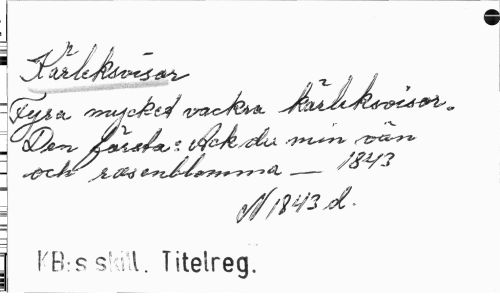 Kärleksvisor
Fyra mycket vackra kärleksvisor.
Den första: Ack du min vän
och rosenblomma — 1843
N 1843 d.
KB:s skill. Titelreg.